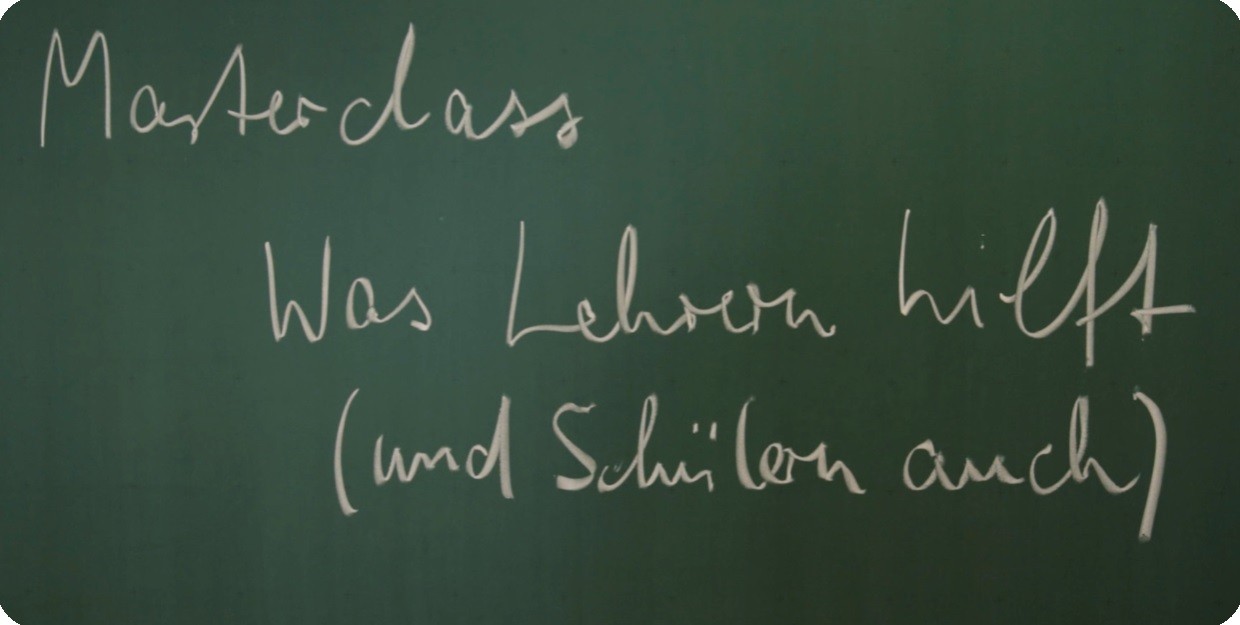 Masterclass
Was Lehrern hilft
(und Schülern auch)